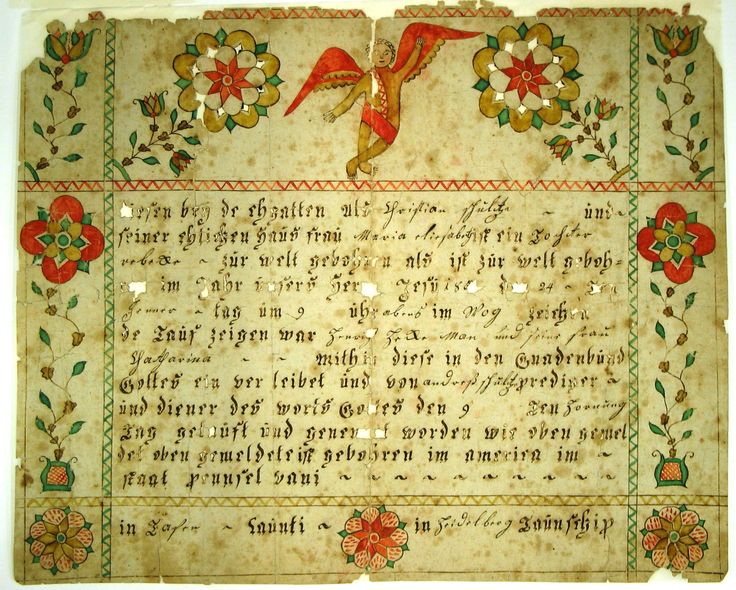 Diesen beÿ de ehgatten als Christian Schultz ~ und ~
seiner ehlichen haus frau Maria Elisabeth ist ein Tochter
rebecke ~ zür welt gebohren als ist zür welt geboh=
im Jahr ünsers Her Jesÿ 24 ~ ten
Jenner ~ tag üm 9 ühr abens im Wog zeichen
de Taüf zeigen war Henrich Man und seine frau
Catharina ~ ~ mithin diese in den Gnadenbünd
Gottes ein ver leibet ünd von andreß Schultz prediger ~
ünd diener des worts Gottes den 9 Ten Hornung
Tag getaüft ünd genennet worden wie oben gemel
det oben gemeldete ist gebohren im america im ~
staat pennsel vani ~ ~ ~ ~ ~ ~ ~ ~
in Tafen ~ Caünti ~ in Heidelberg Taünschip